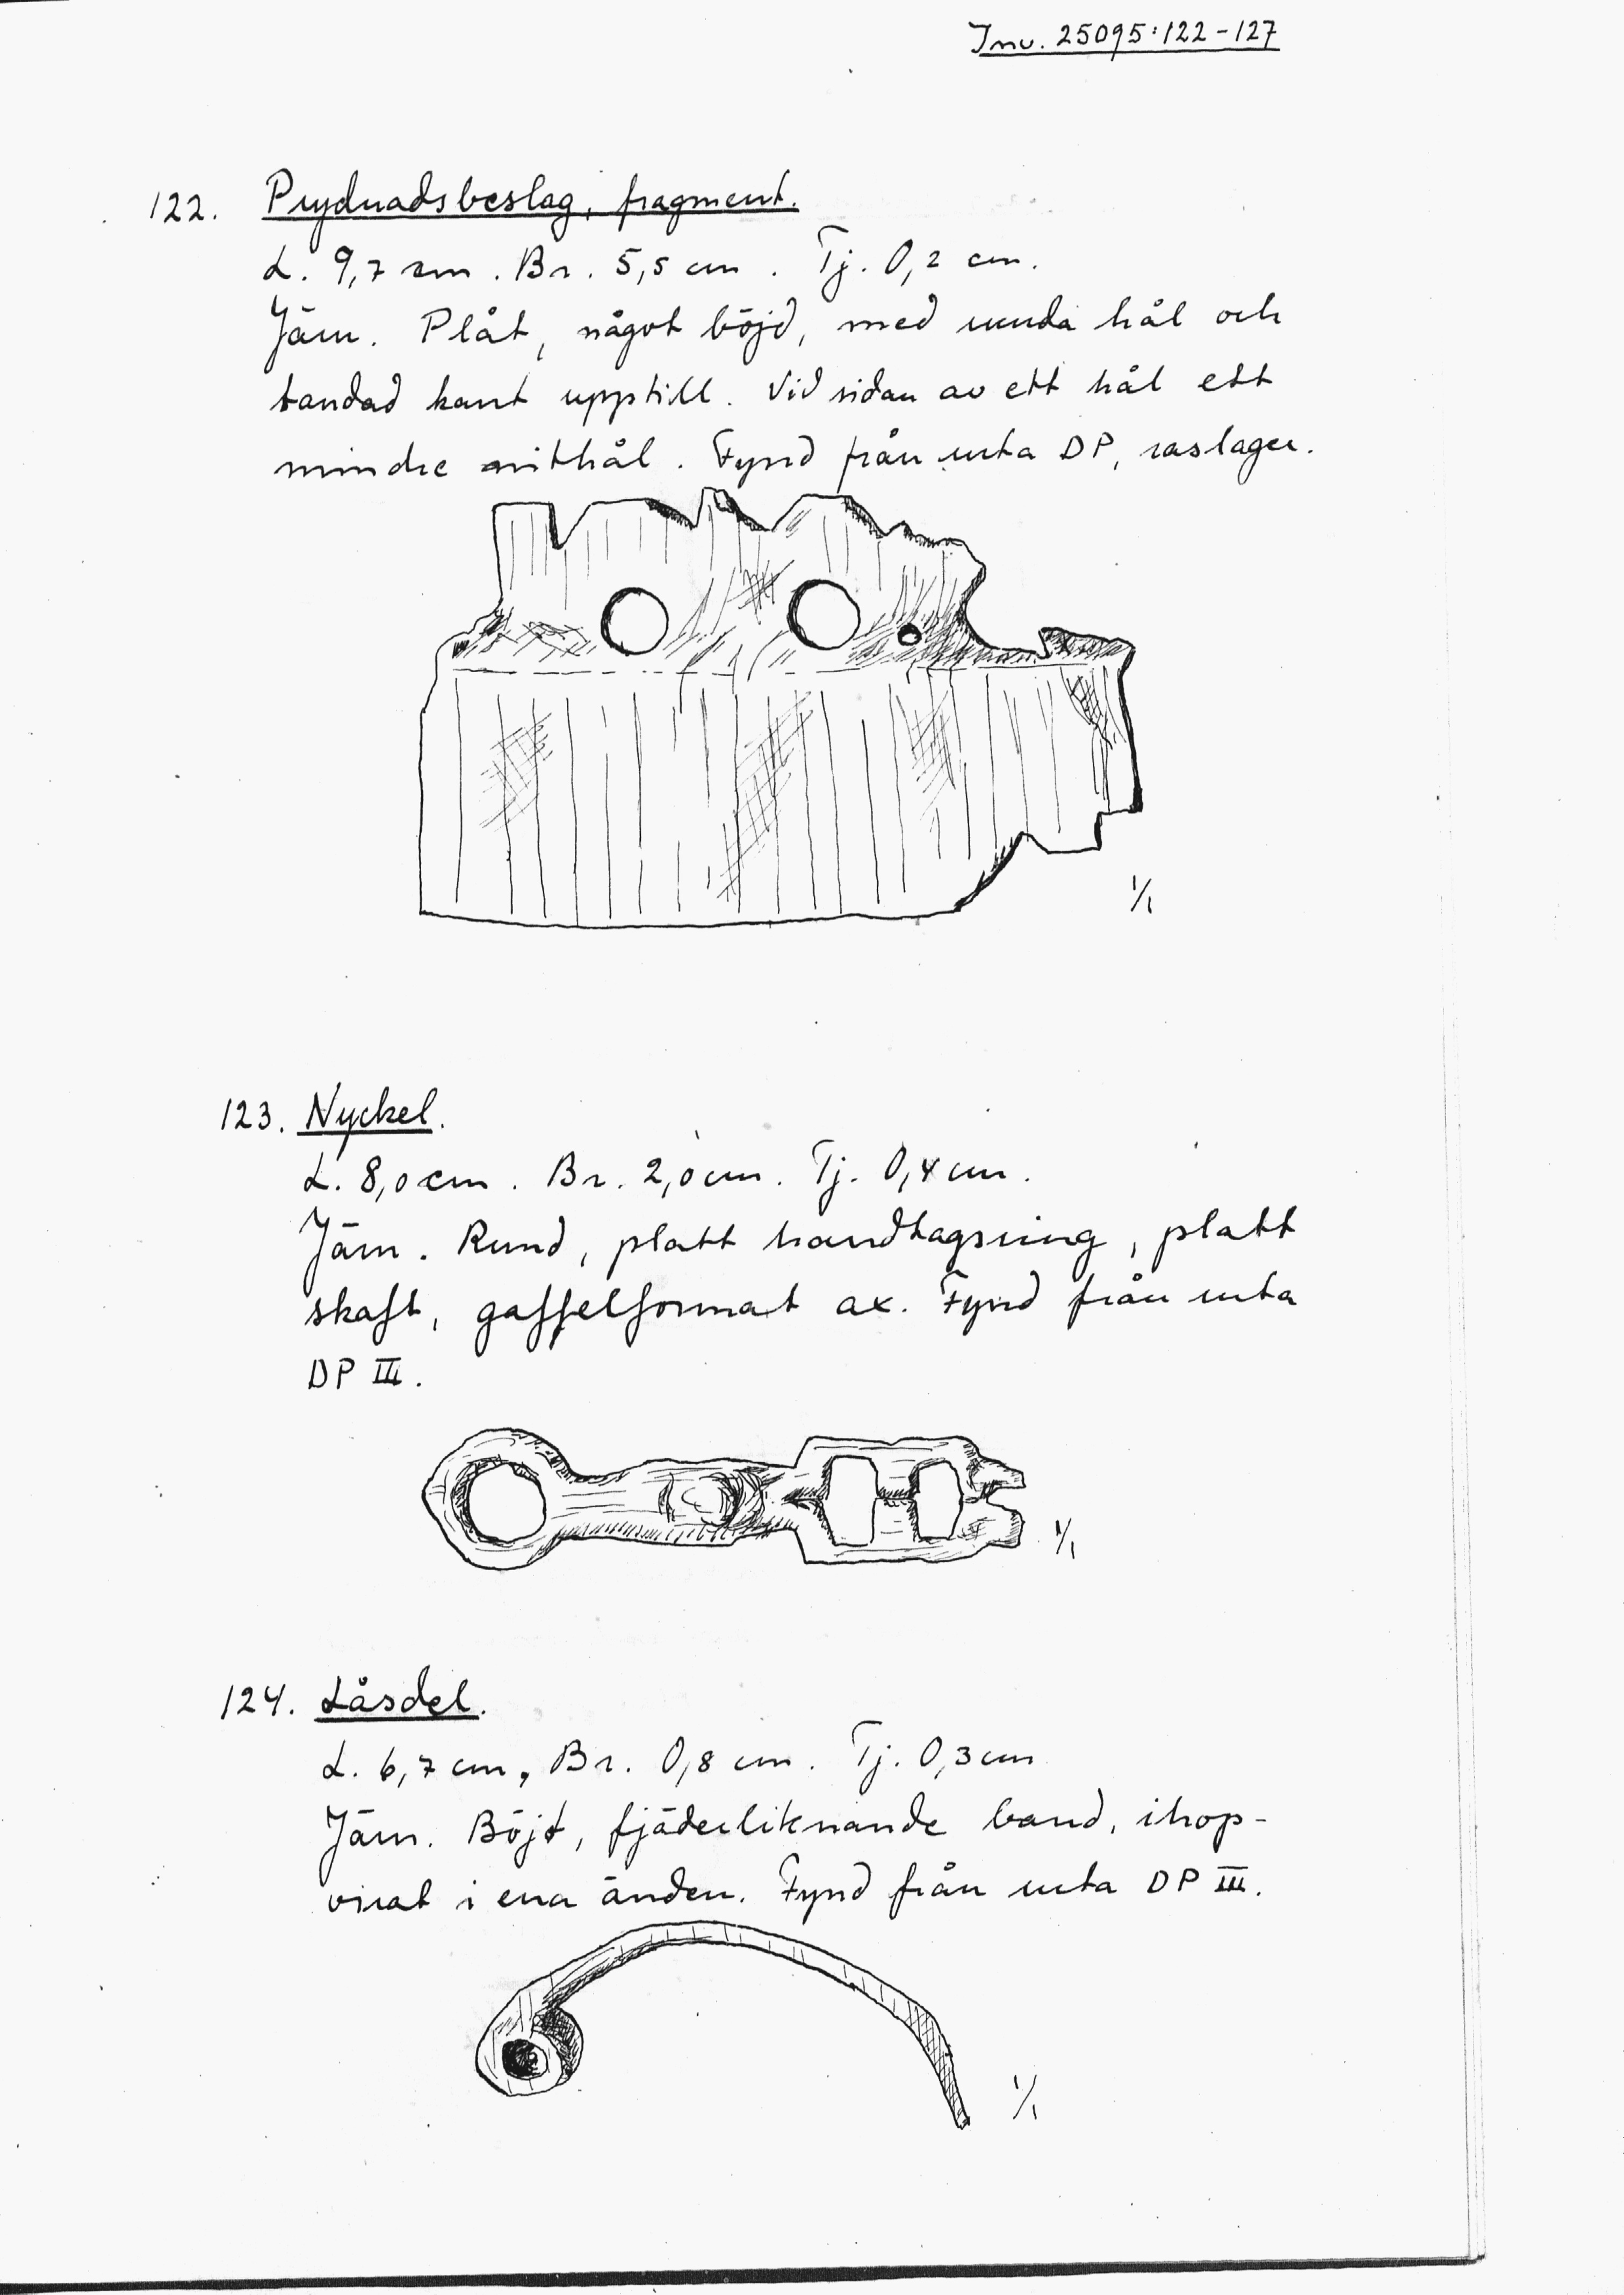 Inv. 25095:122-127
122. Prydnadsbeslag, fragment.
L. 9,7 cm. Br. 5,5 cm. Tj. 0,2 cm.
Järn. Plåt, något böjd, med runda hål och
tandad kant upptill. Vid sidan av ett hål ett
mindre nithål. Fynd från ruta DP, raslager.
1/1
123. Nyckel.
L. 8,0 cm. Br. 2,0 cm. Tj. 0,4 cm.
Järn. Rund, platt handtagsring, platt
skaft, gaffelformat ax. Fynd från ruta
DP III.
1/1
124. Låsdel.
L. 6,7 cm. Br. 0,8 cm. Tj. 0,3 cm
Järn. Böjt, fjäderliknande band, ihop-
virat i ena änden. Fynd från ruta DP III.
1/1